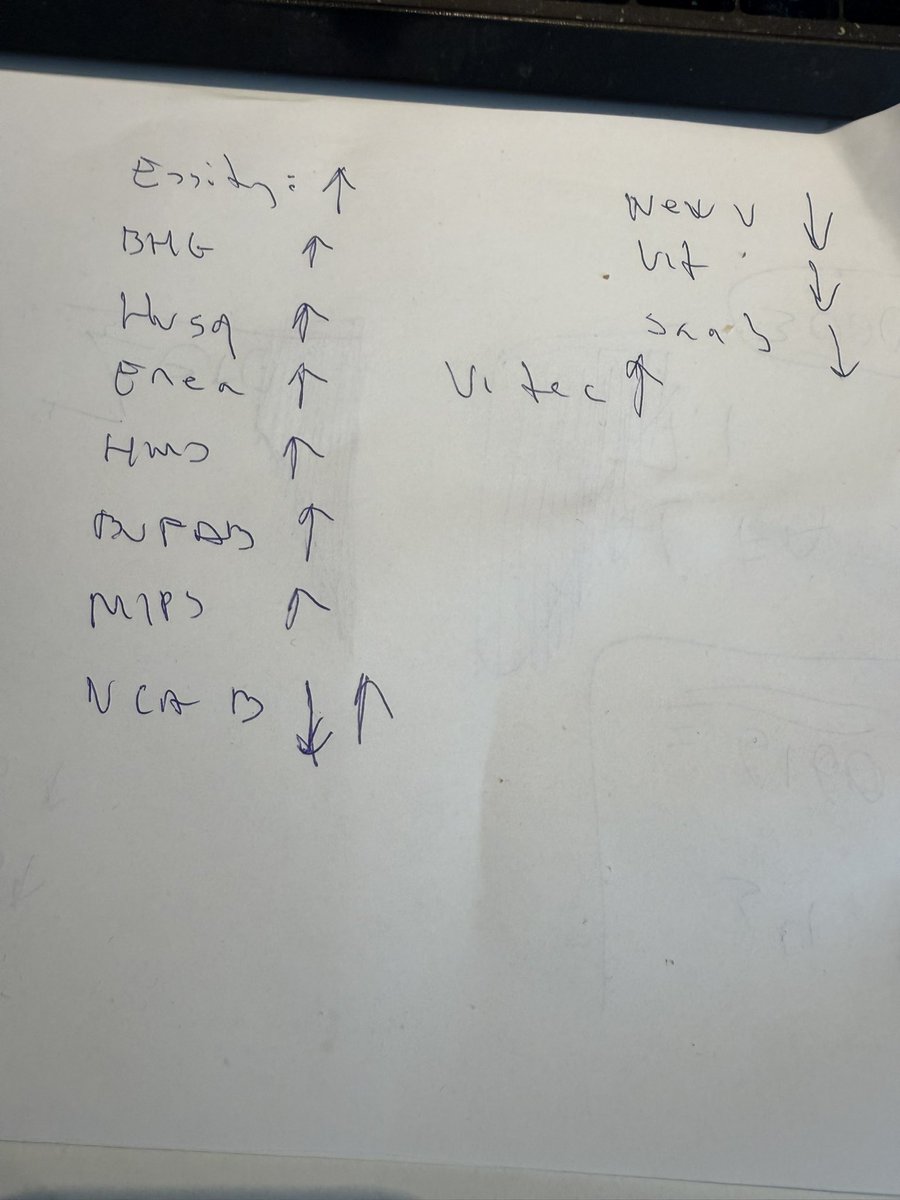 Essity: ↑
BHG ↑
Husq ↑
Enea ↑
HMS ↑
BUFAB ↑
MIPS ↑
NCAB ↓ ↑
New W ↓
Vit ↓
Saab ↓
Vitec ↑